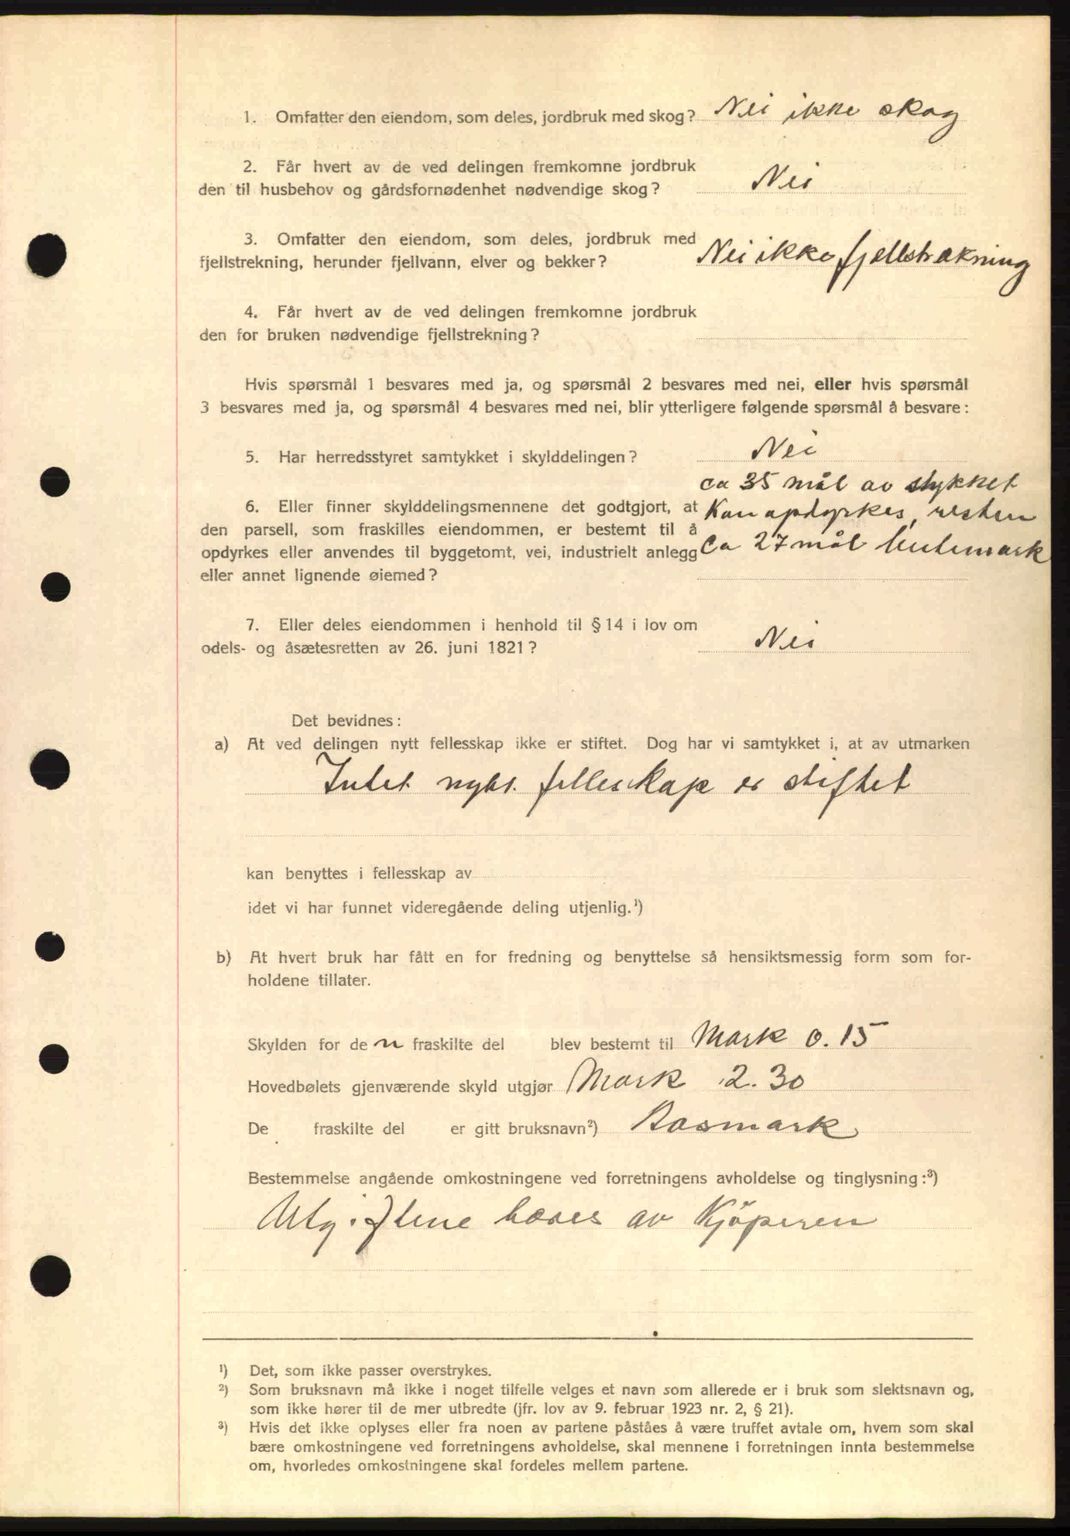 1. Omfatter den eiendom, som deles, jordbruk med skog? Nei ikke skog
2. Får hvert av de ved delingen fremkomne jordbruk
den til husbehov og gårdsfornødenhet nødvendige skog? Nei
3. Omfatter den eiendom, som deles, jordbruk med
fjellstrekning, herunder fjellvann, elver og bekker? Nei ikke fjellstrekning
4. Får hvert av de ved delingen fremkomne jordbruk
den for bruken nødvendige fjellstrekning?
Hvis spørsmål 1 besvares med ja, og spørsmål 2 besvares med nei, eller hvis spørsmål
3 besvares med ja, og spørsmål 4 besvares med nei, blir ytterligere følgende spørsmål å besvare:
5. Har herredsstyret samtykket i skylddelingen? Nei
ca 35 mål av stykket
6. Eller finner skylddelingsmennene det godtgjort, at Kan opdyrkes, resten
den parsell, som fraskilles eiendommen, er bestemt til å
opdyrkes eller anvendes til byggetomt, vei, industrielt anlegg Ca 27 mål
eller annet lignende øiemed?
7. Eller deles eiendommen i henhold til § 14 i lov om
odels- og åsætesretten av 26. juni 1821? Nei
Det bevidnes:
a) At ved delingen nytt fellesskap ikke er stiftet. Dog har vi samtykket i, at av utmarken
Intet nytt felleskap er stiftet
kan benyttes i fellesskap av
idet vi har funnet videregående deling utjenlig.¹)
b) At hvert bruk har fått en for fredning og benyttelse så hensiktsmessig form som for-
holdene tillater.
Skylden for de n fraskilte del blev bestemt til Mark 0.15
Hovedbølets gjenværende skyld utgjør Mark 2.30
De fraskilte del er gitt bruksnavn²) Aasmark
Bestemmelse angående omkostningene ved forretningens avholdelse og tinglysning:³)
Utgiftene bæres av Kjöperen
¹) Det, som ikke passer overstrykes.
²) Som bruksnavn må ikke i noget tilfelle velges et navn som allerede er i bruk som slektsnavn og,
som ikke hører til de mer utbredte (jfr. lov av 9. februar 1923 nr. 2, § 21).
³) Hvis det ikke oplyses eller fra noen av partene påståes å være truffet avtale om, hvem som skal
bære omkostningene ved forretningens avholdelse, skal mennene i forretningen innta bestemmelse
om, hvorledes omkostningene skal fordeles mellem partene.